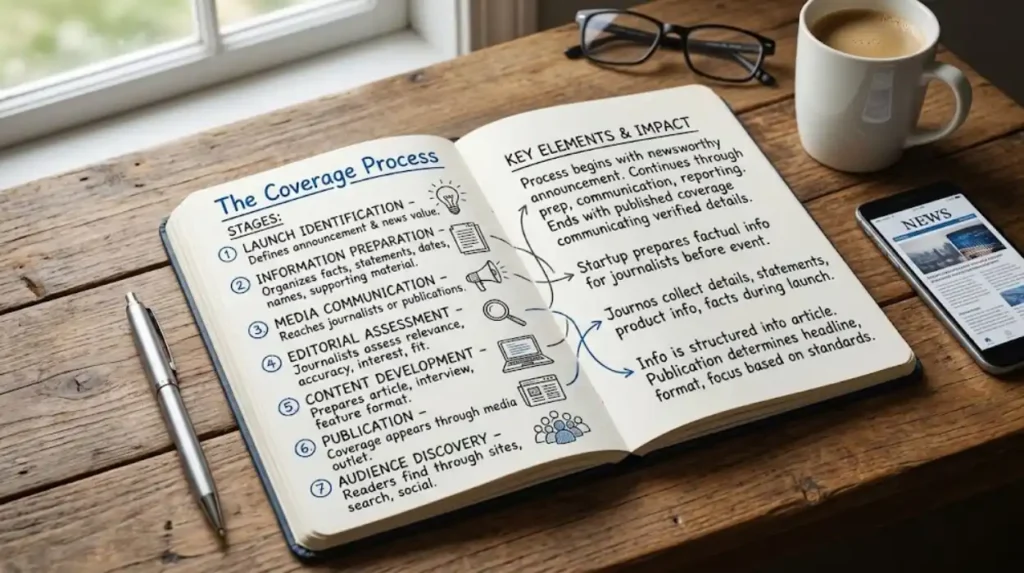 The Coverage Process
STAGES:
1 LAUNCH IDENTIFICATION –
Defines announcement & news value.
2 INFORMATION PREPARATION –
Organizes facts, statements, dates,
names, supporting material.
3 MEDIA COMMUNICATION –
Reaches journalists or publications.
4 EDITORIAL ASSESSMENT –
Journalists assess relevance,
accuracy, interest, fit.
5 CONTENT DEVELOPMENT –
Prepares article, interview,
feature format.
6 PUBLICATION –
Coverage appears through media
outlet.
7 AUDIENCE DISCOVERY –
Readers find through sites,
search, social.
KEY ELEMENTS & IMPACT
Process begins with newsworthy
announcement. Continues through
prep, communication, reporting.
Ends with published coverage
communicating verified details.
Startup prepares factual info
for journalists before event.
Journos collect details, statements,
product info, facts during launch.
Info is structured into article.
Publication determines headline,
format, focus based on standards.
NEWS